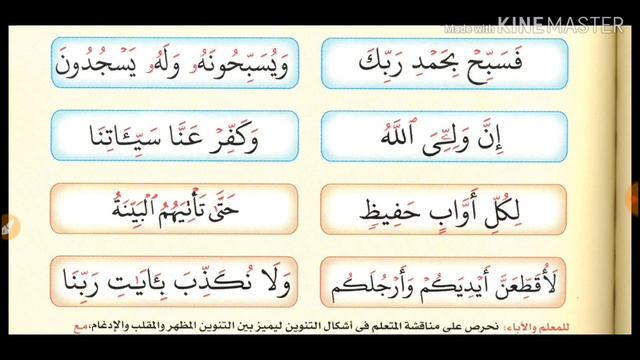 Made with KINEMASTER
فَسَبِّحۡ بِحَمۡدِ رَبِّكَ
وَيُسَبِّحُونَهُۥ وَلَهُۥ يَسۡجُدُونَ
إِنَّ وَلِـِّۧيَ ٱللَّهُ
وَكَفِّرۡ عَنَّا سَيِّـَٔاتِنَا
لِكُلِّ أَوَّابٍ حَفِيظٖ
حَتَّىٰ تَأۡتِيَهُمُ ٱلۡبَيِّنَةُ
لَأُقَطِّعَنَّ أَيۡدِيَكُمۡ وَأَرۡجُلَكُم
وَلَا نُكَذِّبَ بِـَٔايَٰتِ رَبِّنَا
للمعلم والآباء: نحرص على مناقشة المتعلم في أشكال التنوين ليميز بين التنوين المظهر والمقلب والإدغام، مع